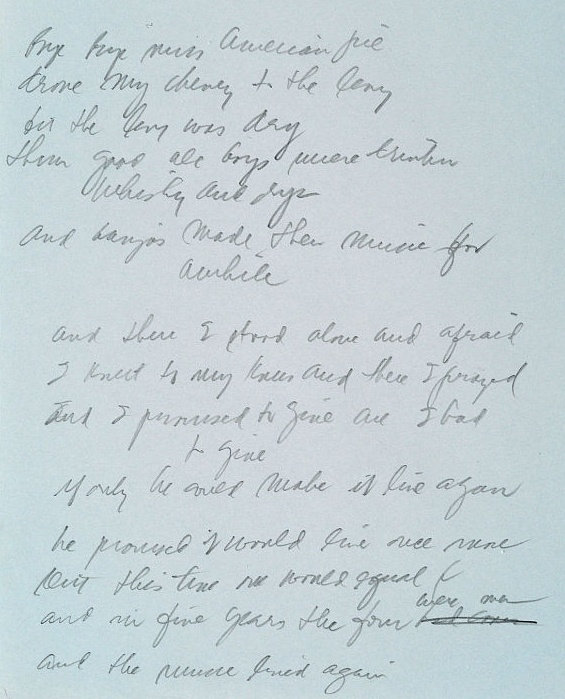 Bye Bye miss American pie
drove my chevy to the levy
but the levy was dry
them good ole boys were drinkin
whisky and rye
and banjos made their music for
awhile
and there I stood alone and afraid
I knelt to my knees and there I prayed
And I promised to give all I had
to give
if only he could make it live again
he promised it would live once more
but this time one would equal
and in five years the four were
and the music lived again